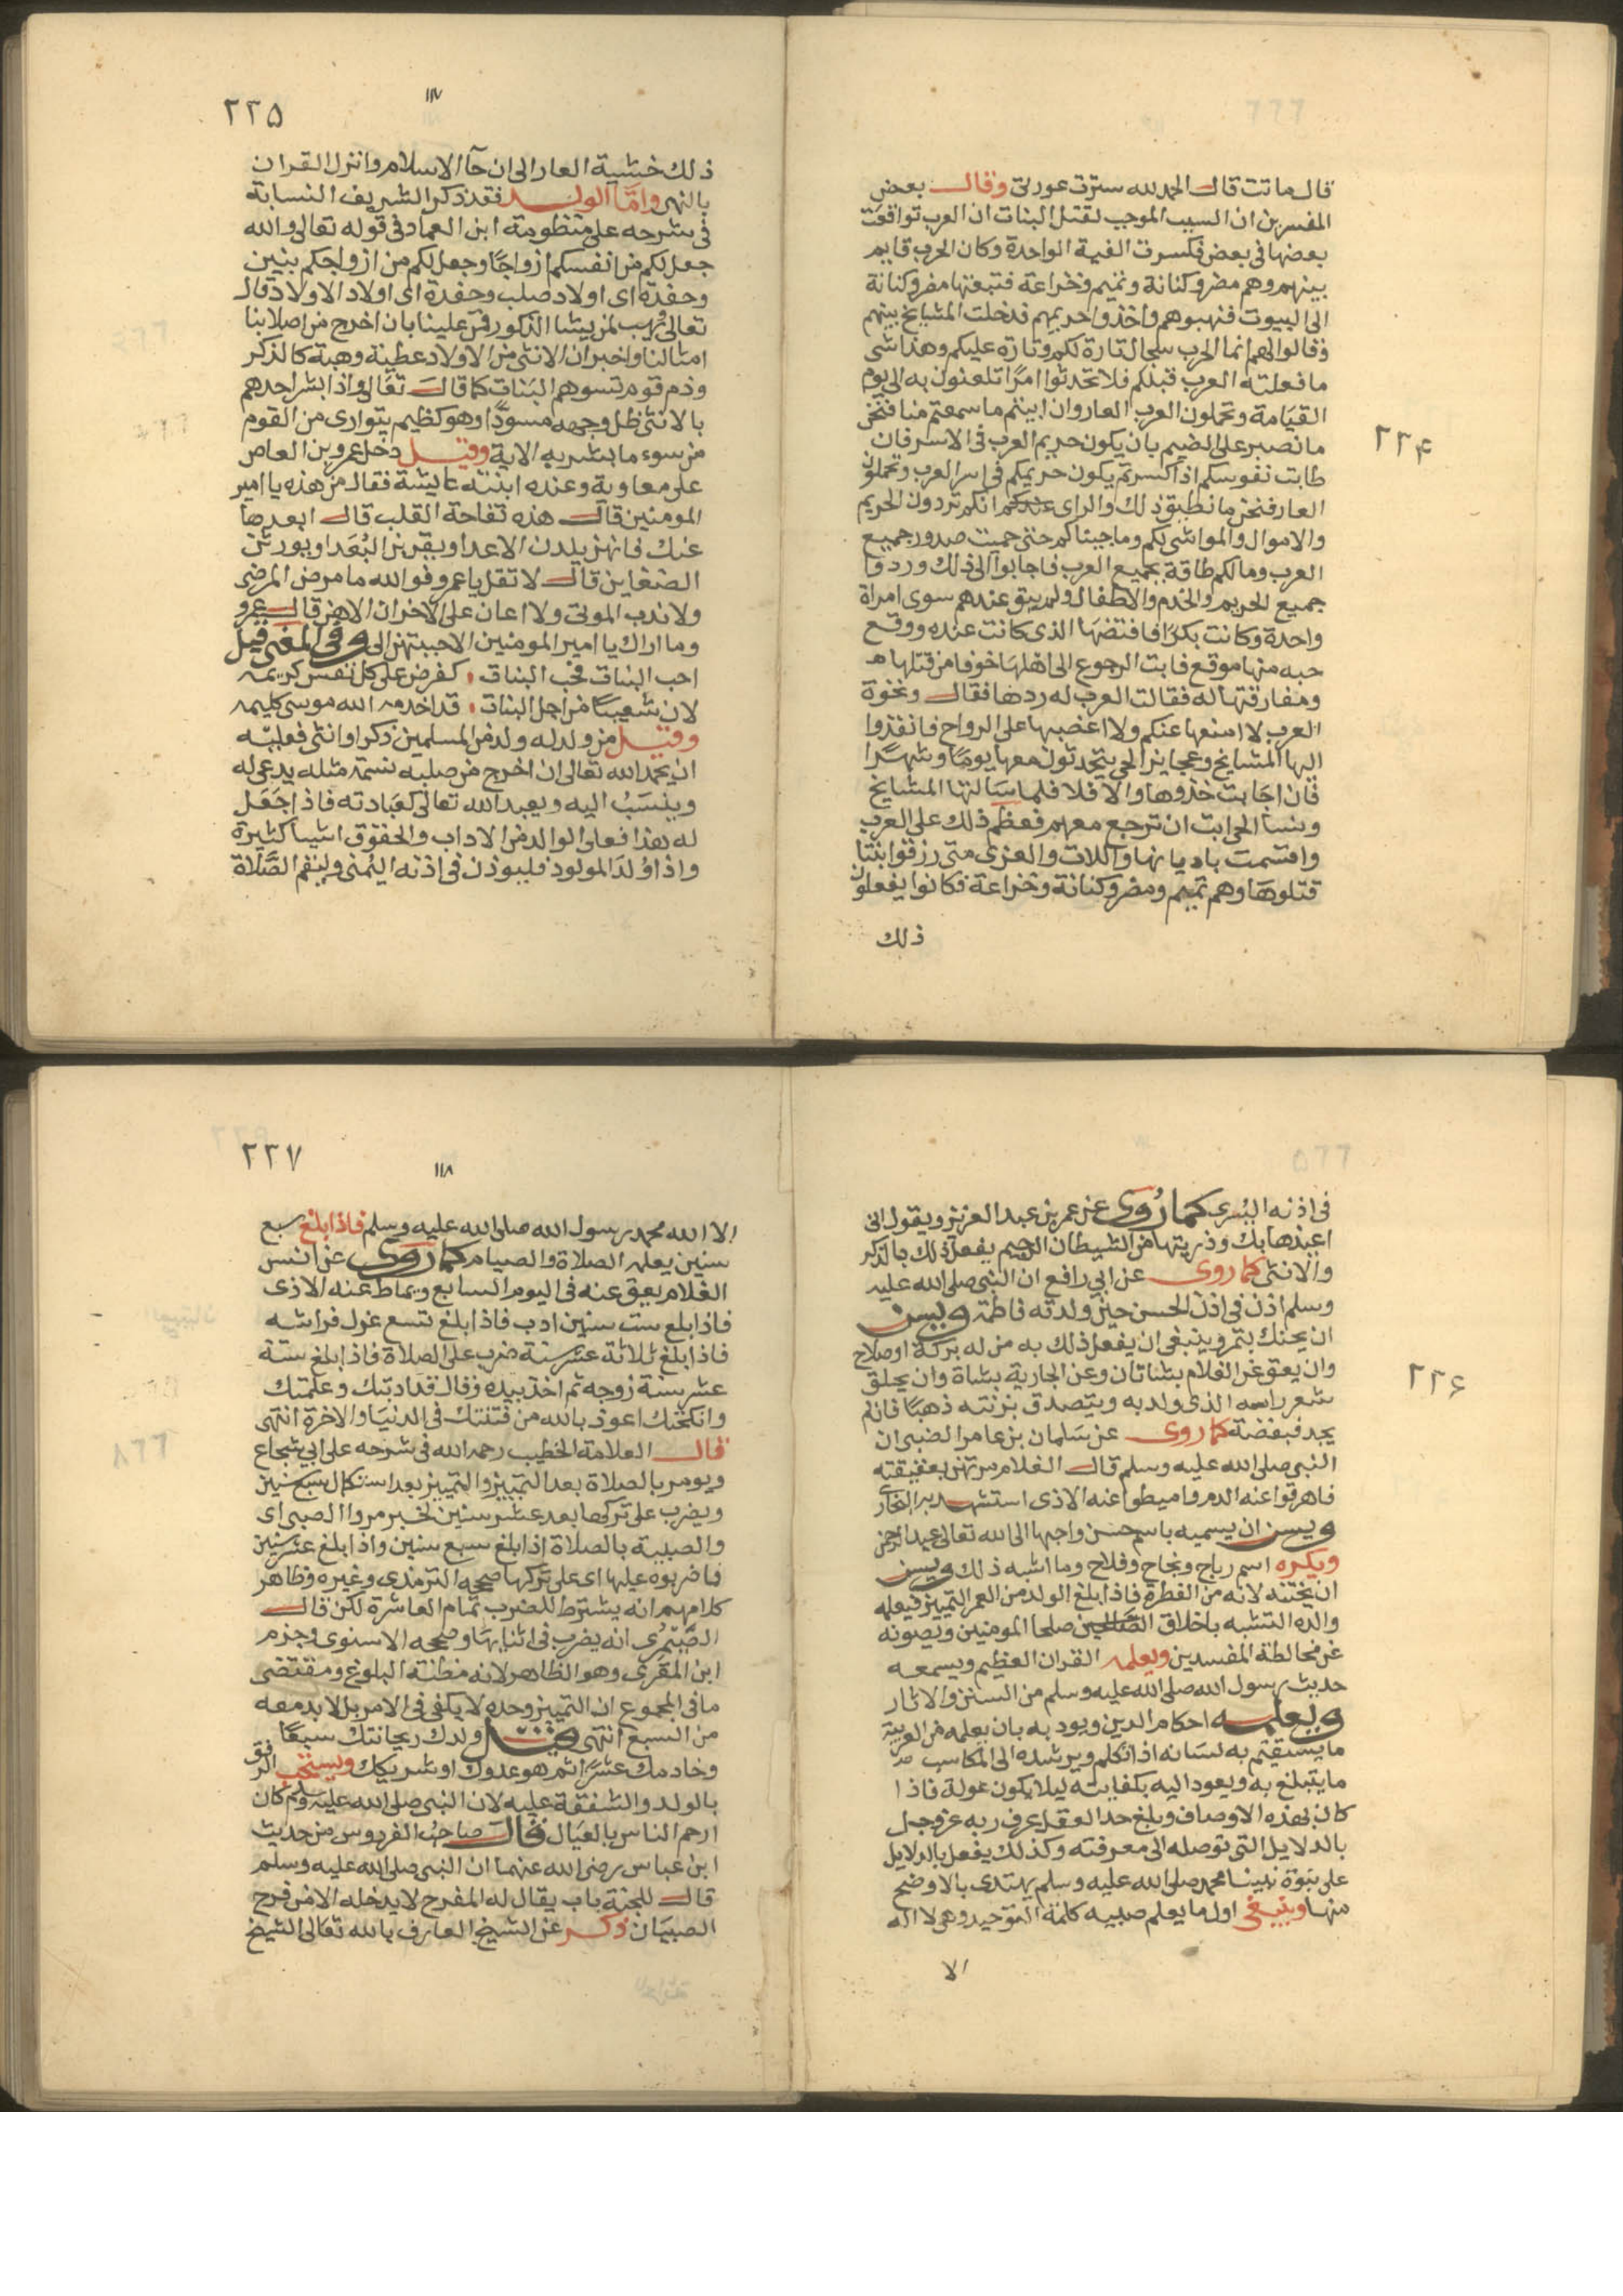 ٢٢۴
قال ماتت قال الحمد لله سترت عورتى وقال بعض
المفسرين ان السبب الموجب لقتل البنات ان العرب تواقعت
بعضها فى بعض فكسرت الفية الواحدة وكان الحرب قايم
بينهم وهم مضر وكنانة وتميم وخزاعة فتبعتها مضر وكنانة
الى البيوت فنهبوهم واخذوا حريمهم فدخلت المشايخ بينهم
وقالوا لهم انما الحرب سجال تارة لكم وتارة عليكم وهذا شى
ما فعلته العرب قبلكم فلا تحدثوا امرًا تلعنون به الى يوم
القيامة وتحملون العرب العار وان ابيتم ما سمعتم منا فنحن
ما نصبر على الضيم بان يكون حريم العرب فى الاسر فان
طابت نفوسكم اذا كسرتم يكون حريمكم فى اسر العرب وتحملون
العار فنحن ما نطيق ذلك والراى عندكم انكم تردون الحريم
والاموال والمواشى لكم وما جيناكم حتى حميت صدور جميع
العرب وما لكم طاقة بجميع العرب فاجابوا الى ذلك وردوا
جميع الحريم والخدم والاطفال ولم يبق عندهم سوى امراة
واحدة وكانت بكرًا فافتضها الذى كانت عنده ووقع
حبه منها موقع فابت الرجوع الى اهلها خوفا من قتلها
ومفارقتها له فقالت العرب له ردها فقال ونخوة
العرب لا امنعها عنكم ولا اغصبها على الرواح فانفذوا
اليها المشايخ وعجايز الحى يتحدثون معها يومًا وشهرًا
فان اجابت خذوها والا فلا فلما سالتها المشايخ
ونسا الحى ابت ان ترجع معهم فعظم ذلك على العرب
واقسمت باديانها واللات والعزى متى رزقوا بنتا
قتلوها وهم تميم ومضر وكنانة وخزاعة فكانوا يفعلون
ذلك
٢٢۵
١١٧
ذلك خشية العار الى ان جآ الاسلام وانزل القران
بالنهى وامّا الولد فقد ذكر الشريف النسابة
فى شرحه على منظومة ابن العماد فى قوله تعالى والله
جعل لكم من انفسكم ازواجًا وجعل لكم من ازواجكم بنين
وحفدة اى اولاد صلب وحفدة اى اولاد الاولاد قال
تعالى ويهب لمن يشا الذكور فمن علينا بان اخرج من اصلابنا
امثالنا واخبر ان الانثى من الاولاد عطية وهبة كالذكر
وذم قوم تسوهم البنات كما قال تعالى واذا بشر احدهم
بالانثى ظل وجهه مسودًّا وهو كظيم يتوارى من القوم
من سوء ما بشر به الاية وقيل دخل عمرو بن العاص
على معاوية وعنده ابنته عايشة فقال من هذه يا امير
المومنين قال هذه تفاحة القلب قال ابعدها
عنك فانهن يلدن الاعدا ويقربن البُعَدا ويورثن
الضغاين قال لا تقل يا عمرو فوالله ما مرض المرضى
ولا ندب الموتى ولا اعان على الاخران الاهن قال عمرو
وما اراك يا امير المومنين الا حببتهن الى وفى المعنى قيل
احب البنات فحب البنات ، كفرض على كل نفس كريمه
لان شعيبًا من اجل البنات ، قد اخدمه الله موسى كليمه
وقيل من ولد له ولد من المسلمين ذكرا وانثى فعليه
ان يحمد الله تعالى ان اخرج من صلبه نسمة مثله يدعى له
وينسَبُ اليه ويعبد الله تعالى كعبادته فاذ اجَعَل
له هذا فعلى الوالد من الاداب والحقوق اشيا كثيرة
واذا وُلدَ المولود فليوذن فى اذنه اليُمنى وليقم الصَّلاة
٢٢۶
فى اذنه اليُسرى كما رُوى عن عمر بن عبد العزيز ويقول انى
اعيذها بك وذريتها من الشيطان الرجيم يفعل ذلك بالذكر
والانثى كما روى عن ابى رافع ان النبى صلى الله عليه
وسلم اذن فى اذن الحسن حين ولدته فاطمة ويسن
ان يحنك بتمر وينبغى ان يفعل ذلك به من له بركة اوصلاح
وان يعق عن الغلام بشاتان وعن الجارية بشاة وان يحلق
شعر راسه الذى ولد به ويتصدق بزنته ذهبًا فان لم
يجد فبفضة كما روى عن سَلمان بن عامر الضبى ان
النبى صلى الله عليه وسلم قال الغلام مرتهن بعقيقته
فاهرقوا عنه الدم واميطوا عنه الاذى استشهد به البخارى
ويسن ان يسميه باسم حسن واحبها الى الله تعالى عبد الرحمن
ويكره اسم رباح ونجاح وفلاح وما اشبه ذلك ويسن
ان يختنه لانه من الفطرة فاذا بلغ الولد من العمر التمييز فيعلمه
والده التشبه باخلاق الصالحين صلحا المومنين ويصونه
عن مخالطة المفسدين ويعلمه القران العظيم ويسمعه
حديث رسول الله صلى الله عليه وسلم من السنن والاثار
ويعلمه احكام الدين ويودبه بان يعلمه من العربية
ما يستقيم به لسانه اذا تكلم ويرشده الى المكاسب
ما يتبلغ به ويعود اليه بكفايته ليلا يكون عولة فاذا
كان بهذه الاوصاف وبلغ حد العقل عرف ربه عز وجل
بالدلايل التى توصله الى معرفته وكذلك يفعل بالدلايل
على نبوة نبينا محمد صلى الله عليه وسلم يهتدى بالاوضح
منها وينبغى اول ما يعلم صبيه كلمة التوحيد وهى لا اله
الا
٢٢٧
١١٨
الا الله محمد رسول الله صلى الله عليه وسلم فاذا بلغ سبع
سنين يعلمه الصلاة والصيام كما روى عن انس
الغلام يعق عنه فى اليوم السابع ويماط عنه الاذى
فاذا بلغ ست سنين ادب فاذا بلغ تسع عزل فراشه
فاذا بلغ ثلاثة عشر سنة ضرب على الصلاة فاذا بلغ ستة
عشر سنة زوجه ثم اخذ بيده وقال قد ادبتك وعلمتك
وانكحتك اعوذ بالله من فتنتك فى الدنيا والاخرة انتهى
قال العلامة الخطيب رحمه الله فى شرحه على ابى شجاع
ويومر بالصلاة بعد التمييز والتمييز بعد استكمال سبع سنين
ويضرب على تركها بعد عشر سنين لخبر مروا الصبى اى
والصبية بالصلاة اذا بلغ سبع سنين واذا بلغ عشر سنين
فاضربوه عليها اى على تركها صححه الترمذى وغيره وظاهر
كلامهم انه يشترط للضرب تمام العاشرة لكن قال
الصَّيْمرى انه يضرب فى اثنايها وصححه الاسنوى وجزم
ابن المقرى وهو الظاهر لانه مظنة البلوغ ومقتضى
ما فى المجموع ان التمييز وحده لا يكفى فى الامر بل لابد معه
من السبع انتهى وقيل ولدك ريحانتك سبعًا
وخادمك عشرًا ثم هو عدوك او شريكك ويستحب الرفق
بالولد والشفقة عليه لان النبى صلى الله عليه وسلم كان
ارحم الناس بالعيال قال صاحب الفردوس من حديث
ابن عباس رضى الله عنهما ان النبى صلى الله عليه وسلم
قال للجنة باب يقال له المفرح لا يدخله الا من فرح
الصبيان ذكر عن الشيخ العارف بالله تعالى الشيخ